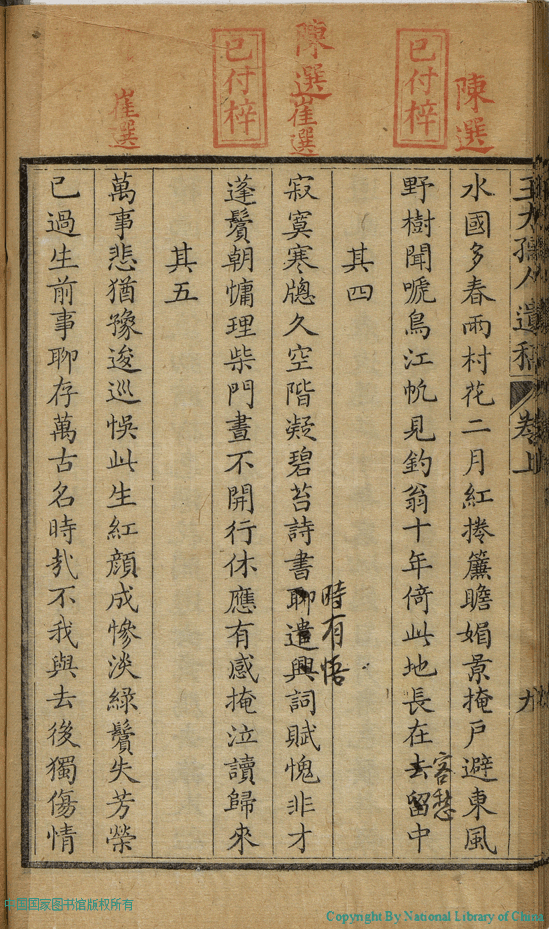 陳選
已付梓
陳選崔選
已付梓
崔選
孺人遺稿 卷上 九
水國多春雨村花二月紅捲簾瞻媚景掩戶避東風
野樹聞嗁鳥江帆見釣翁十年倚此地長在去留中
客愁
其四
寂寞寒牕久空階凝碧苔詩書聊遣興詞賦愧非才
時有悟
蓬鬢朝慵理柴門晝不開行休應有感掩泣讀歸來
其五
萬事悲猶豫逡巡悞此生紅顏成慘淡綠鬢失芳榮
已過生前事聊存萬古名時哉不我與去後獨傷情
中国国家图书馆版权所有
Copyright By National Library of China